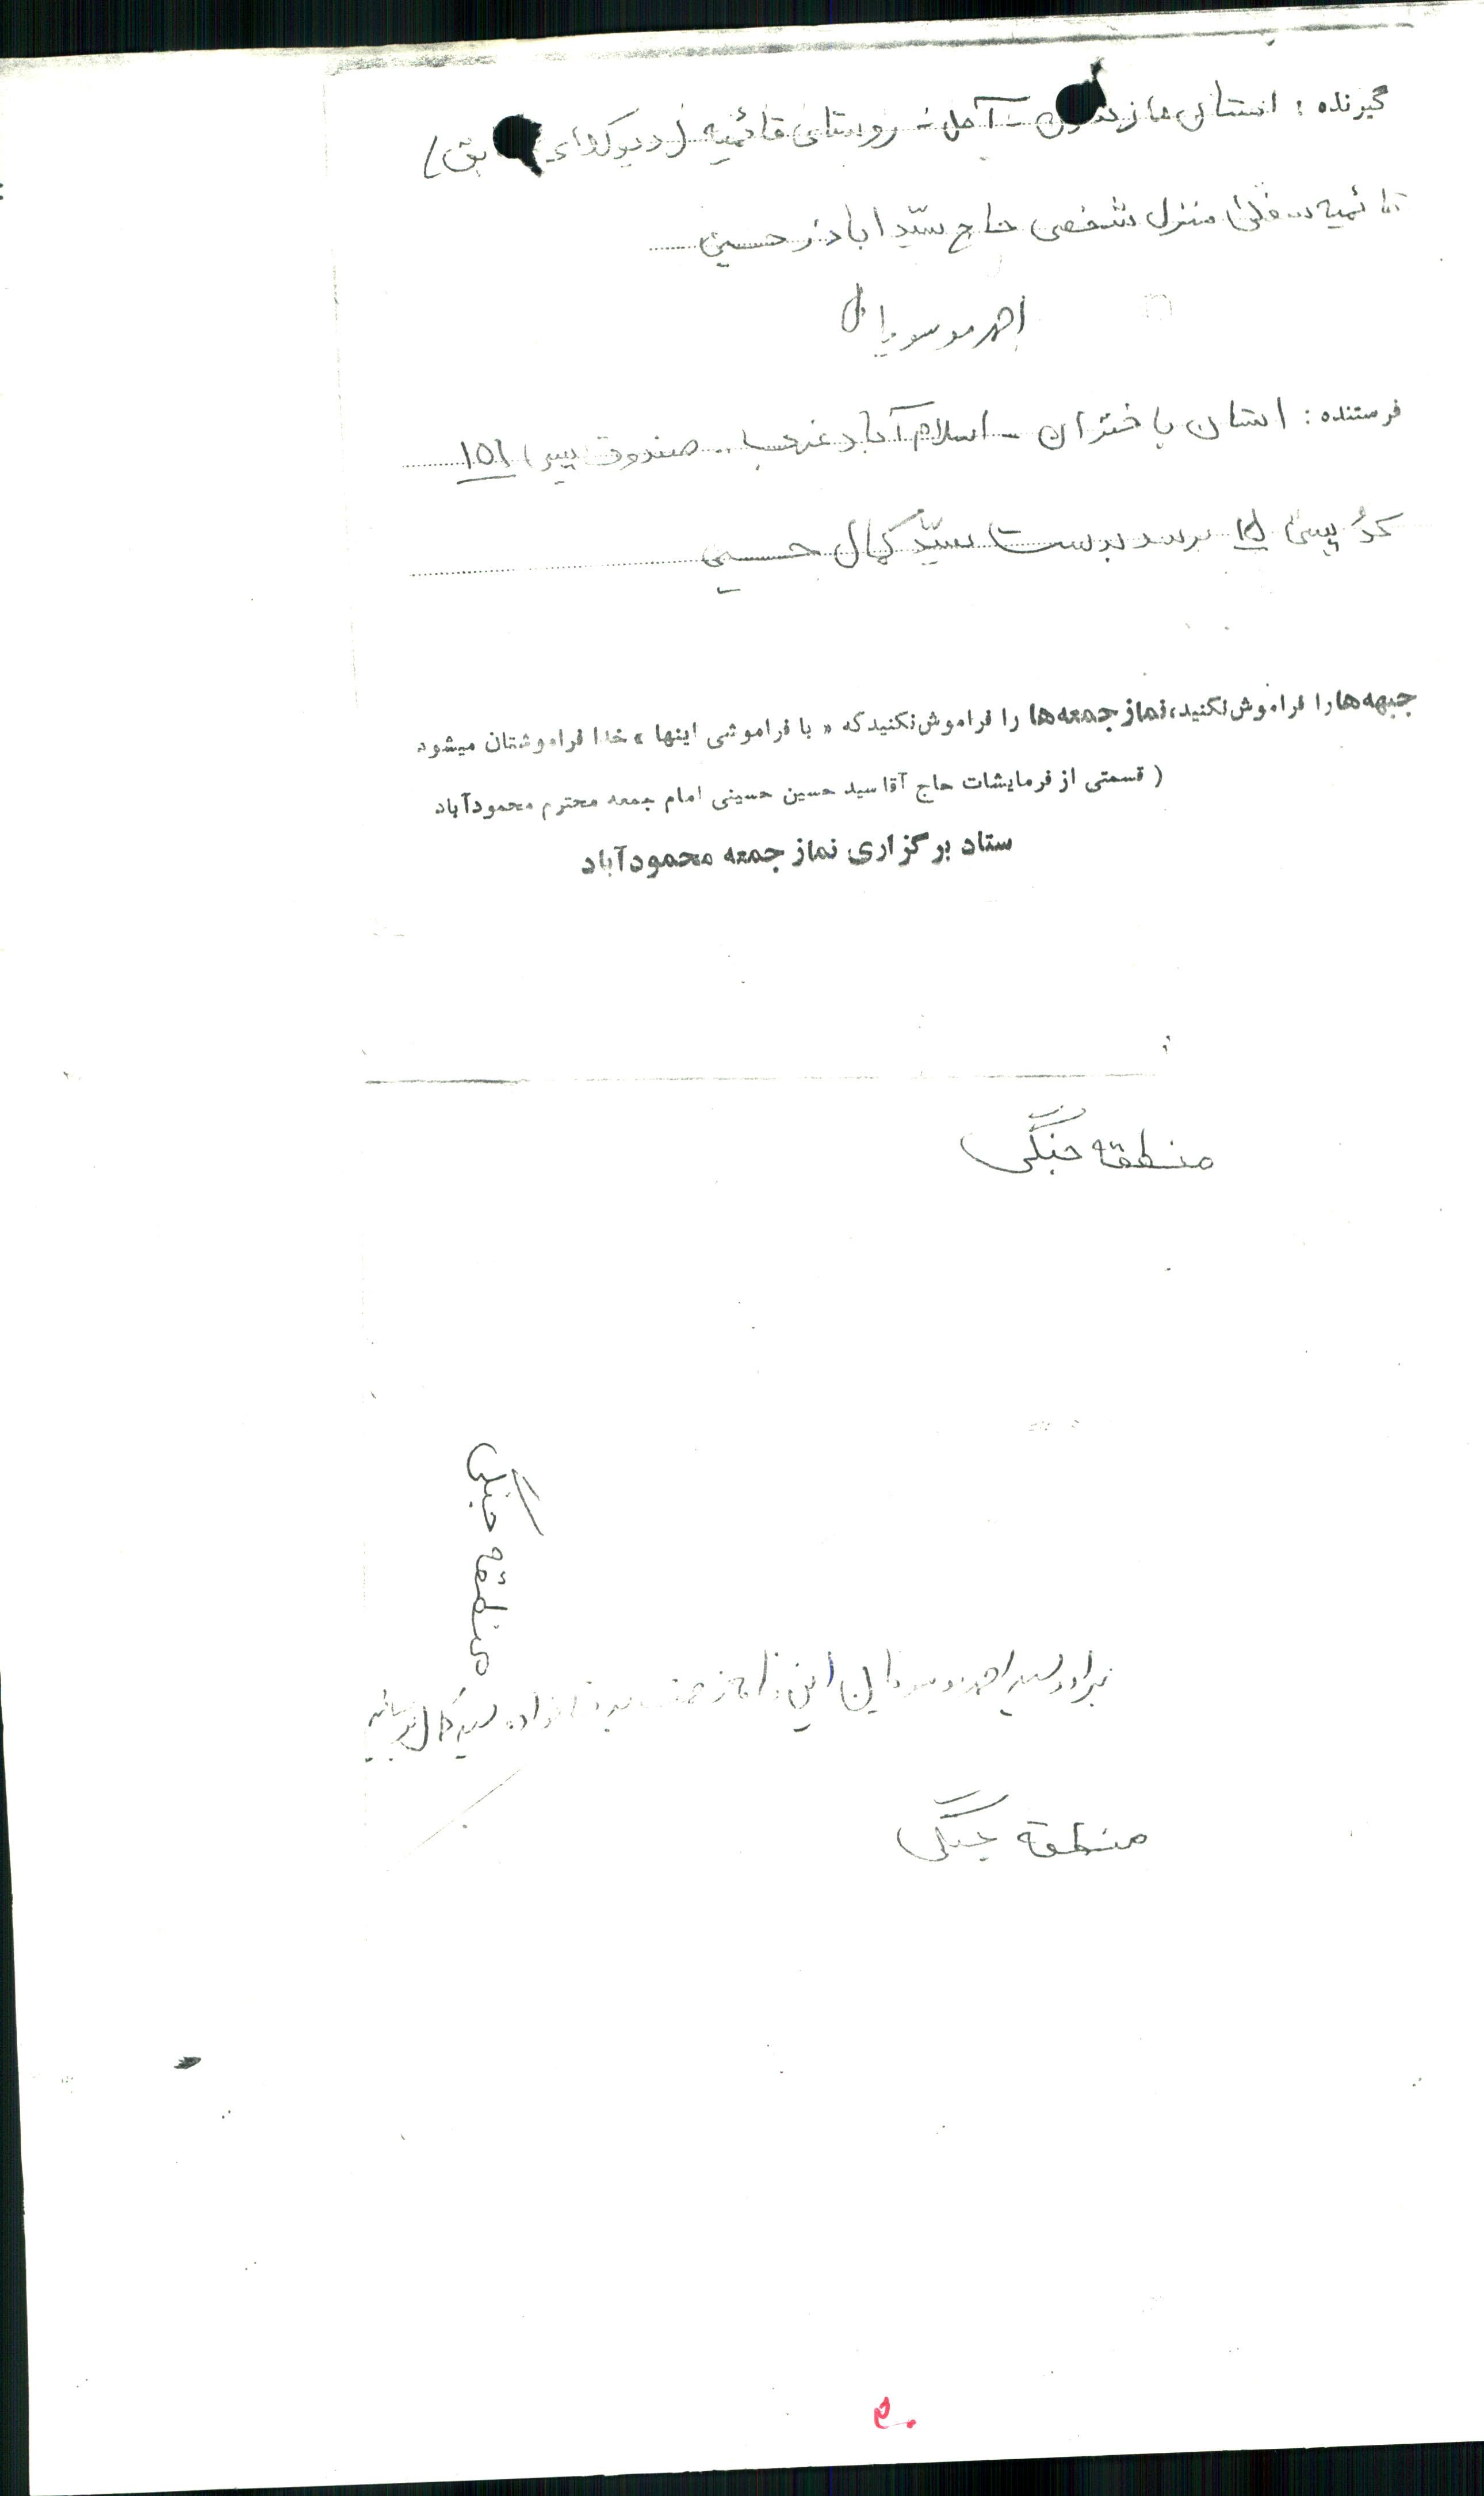 گیرنده: استان مازندران - آمل - روستای قائمیه (دیوکلای سابق)
قائمیه سفلی منزل شخصی حاج سیّد اباذر حسینی
فرستنده: استان باختران - اسلام آباد غرب - صندوق پستی ۱۵۱
کدُ پستی ۱۵ برسد بدست سیّد کمال حسینی
جبهه‌ها را فراموش نکنید، نماز جمعه‌ها را فراموش نکنید که «با فراموشی اینها» خدا فراموشتان میشود
(قسمتی از فرمایشات حاج آقا سید حسین حسینی امام جمعه محترم محمودآباد
ستاد برگزاری نماز جمعه محمودآباد
منطقه جنگی
منطقه جنگی
برادر سید این
منطقه جنگی